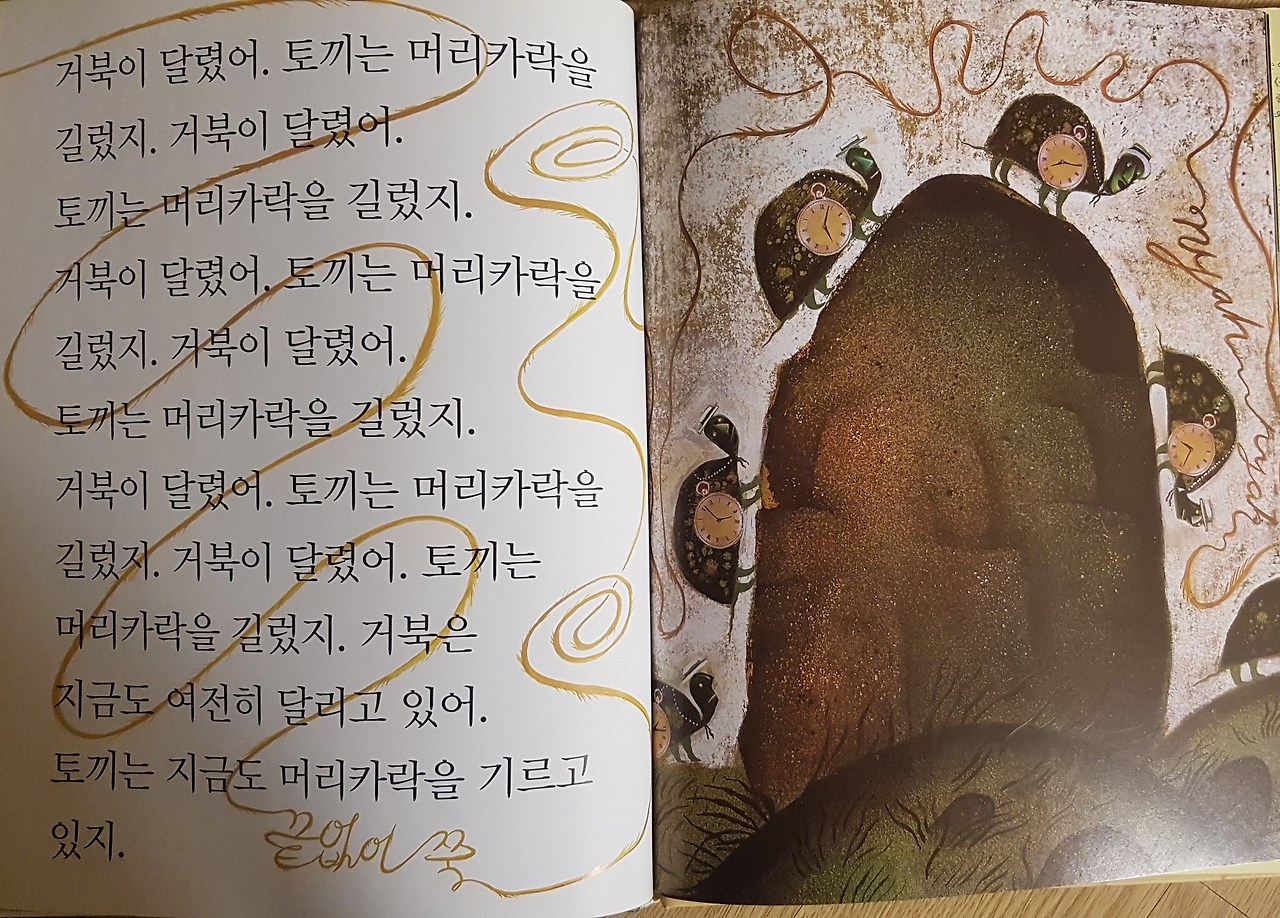 거북이 달렸어. 토끼는 머리카락을
길렀지. 거북이 달렸어.
토끼는 머리카락을 길렀지.
거북이 달렸어. 토끼는 머리카락을
길렀지. 거북이 달렸어.
토끼는 머리카락을 길렀지.
거북이 달렸어. 토끼는 머리카락을
길렀지. 거북이 달렸어. 토끼는
머리카락을 길렀지. 거북은
지금도 여전히 달리고 있어.
토끼는 지금도 머리카락을 기르고
있지.
끝없이 쭉